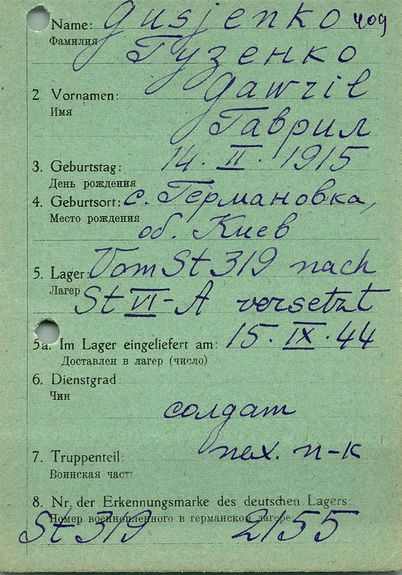 Name: Gusjenko 409
Фамилия Гузенко
2 Vornamen: Gawril
Имя Гаврил
3. Geburtstag: 14. II. 1915
День рождения
4. Geburtsort: с. Германовка,
Место рождения об. Киев
5. Lager: Vom St 319 nach
Лагер St VI-A versetzt
5a. Im Lager eingeliefert am: 15. IX. 44
Доставлен в лагер (число)
6. Dienstgrad:
Чин солдат
7. Truppenteil: пех. п-к
Воинская часть
8. Nr. der Erkennungsmarke des deutschen Lagers:
Номер военнопленного в германском лагере
St 319 2155